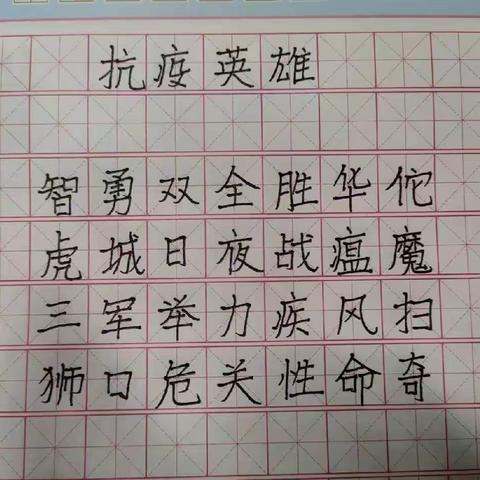 抗疫英雄
智勇双全胜华佗
虎城日夜战瘟魔
三军举力疾风扫
狮口危关性命奇